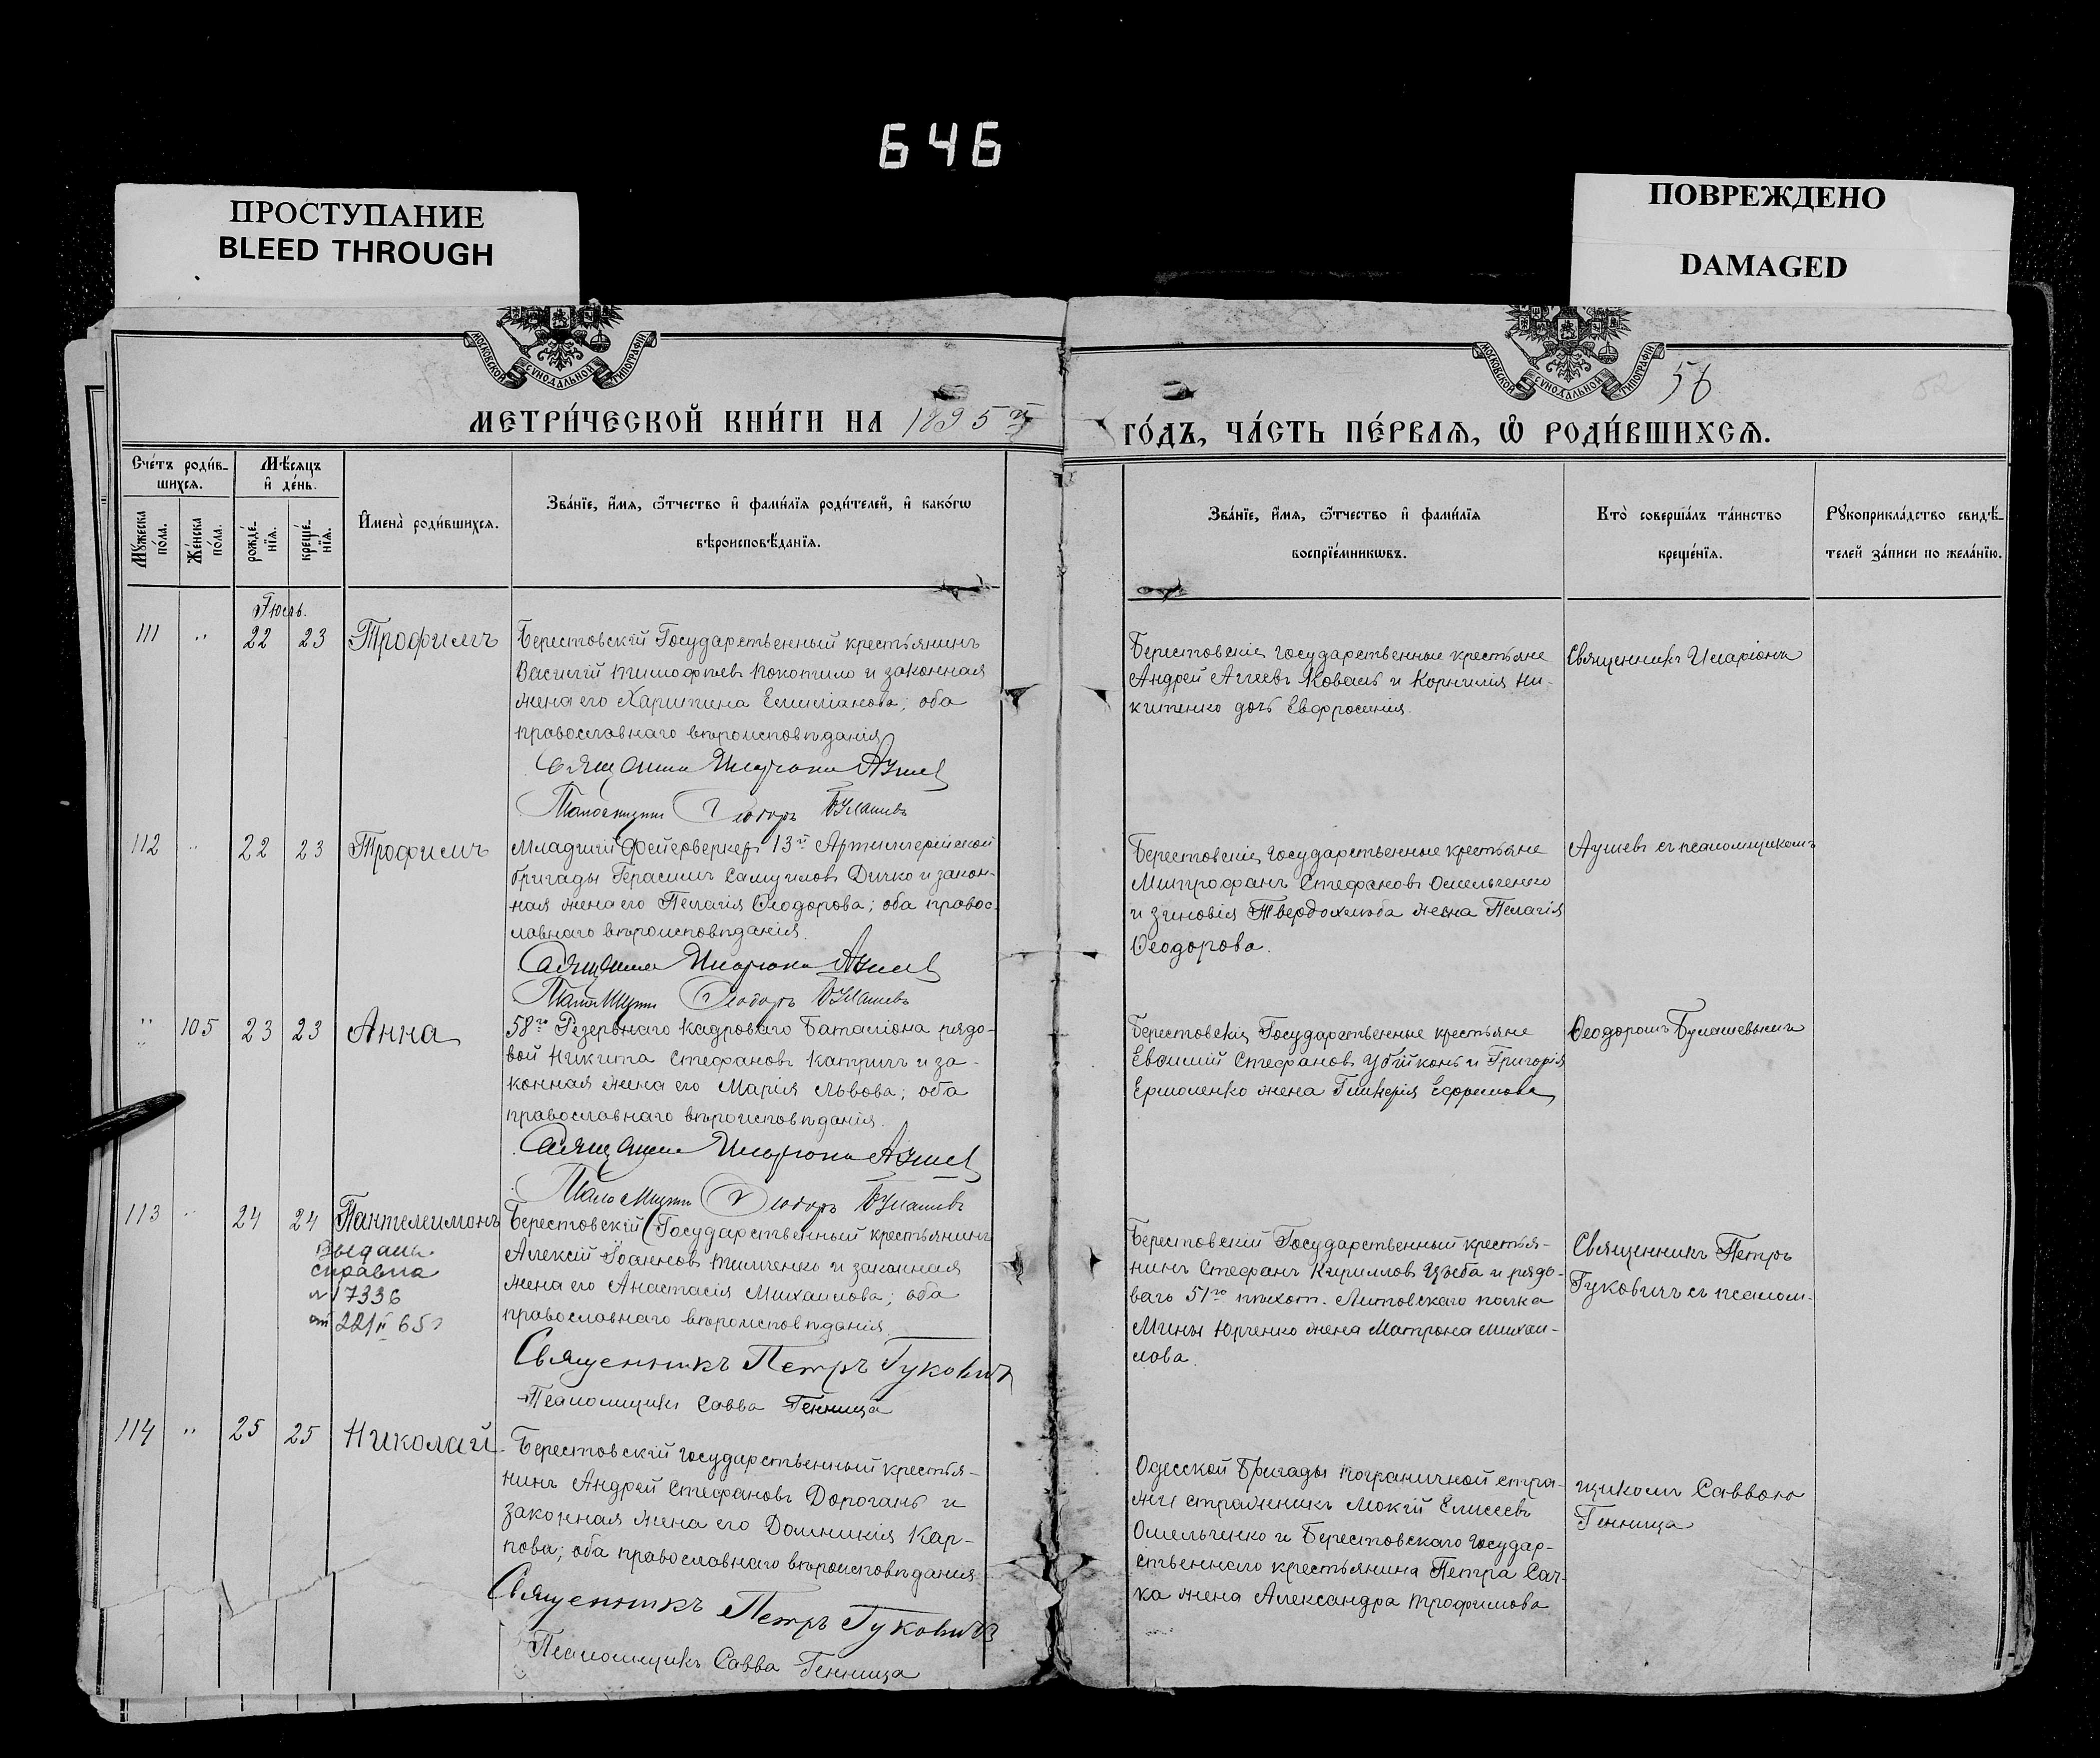 646
ПРОСТУПАНИЕ
BLEED THROUGH
ПОВРЕЖДЕНО
DAMAGED
МОСКОВСКОЙ СУНОДАЛЬНОЙ ТИПОГРАФІИ
МОСКОВСКОЙ СУНОДАЛЬНОЙ ТИПОГРАФІИ
56
МЕТРИ́ЧЕСКОЙ КНИ́ГИ НА 1895 й
ГО́ДЪ, ЧА́СТЬ ПЕ́РВАѦ, Ѡ РОДИ́ВШИХСѦ.
Сче́тъ роди́в-
шихсѧ.
Мѣ́сѧцъ
и҆ де́нь.
Мꙋ́жеска
по́ла.
Же́нска
по́ла.
рожде́-
нїѧ.
креще́-
нїѧ.
И҆мена̀ роди́вшихсѧ.
Зва́нїе, и҆́мѧ, ѻ҆́тчество и҆ фами́лїѧ роди́телей, и҆ како́гѡ
вѣроисповѣ́данїѧ.
Зва́нїе, и҆́мѧ, ѻ҆́тчество и҆ фами́лїѧ
воспрїе́мникѡвъ.
Кто̀ соверша́лъ та́инство
креще́нїѧ.
Рꙋкоприкла́дство свидѣ́-
телей за́писи по жела́нїю.
Іюль.
111 " 22 23 Трофимъ
Берестовскій Государственный крестьянинъ
Василій Тимофѣевъ Покотило и законная
жена его Харитина Емиліанова; оба
православнаго вѣроисповѣданія
Священникъ Иларіонъ Аушевъ
Псаломщикъ Ѳеодоръ Булашевъ
Берестовскіе государственные крестьяне
Андрей Агеевъ Коваль и Корнилія Ни-
китенко дочь Евфросинія.
Священникъ Иларіонъ
112 " 22 23 Трофимъ
Младшій Фейерверкеръ 13й Артиллерійской
бригады Герасимъ Самуиловъ Дичко и закон-
ная жена его Пелагія Ѳеодорова; оба правос-
лавнаго вѣроисповѣданія.
Священникъ Иларіонъ Аушевъ
Псаломщикъ Ѳеодоръ Булашевъ
Берестовскіе государственные крестьяне
Митрофанъ Стефановъ Омельченко
и Зиновія Твердохлѣба жена Пелагія
Ѳеодорова.
Аушевъ съ псаломщикомъ
" 105 23 23 Анна
58го Резервнаго Кадроваго Баталіона рядо-
вой Никита Стефановъ Катричъ и за-
конная жена его Марія Львова; оба
православнаго вѣроисповѣданія.
Священникъ Иларіонъ Аушевъ
Псаломщикъ Ѳеодоръ Булашевъ
Берестовскіе Государственные крестьяне
Евфимій Стефановъ Убійконь и Григорія
Ермоленко жена Гликерія Ефремова
Ѳеодоромъ Булашевымъ
113 " 24 24 Пантелеимонъ
Выдана
справка
№ 7336
от 22/II 65 г
Берестовскій Государственный крестьянинъ
Алексій Іоанновъ Тимченко и законная
жена его Анастасія Михаилова; оба
православнаго вѣроисповѣданія
Священникъ Петръ Гуковичъ
Псаломщикъ Савва Генница
Берестовскій Государственный крестья-
нинъ Стефанъ Кирилловъ Цыба и рядо-
ваго 51го пѣхот. Литовскаго полка
Мины Юрченко жена Матрона Михаи-
лова.
Священникъ Петръ
Гуковичъ съ псалом-
114 " 25 25 Николай
Берестовскій государственный крестья-
нинъ Андрей Стефановъ Дорогань и
законная жена его Домникія Кар-
пова; оба православнаго вѣроисповѣданія
Священникъ Петръ Гуковичъ
Псаломщикъ Савва Генница
Одесской Бригады пограничной стра-
жи стражникъ Мокій Елисеевъ
Омельченко и Берестовскаго государ-
ственнаго крестьянина Петра Сач-
ка жена Александра Трофимова
щикомъ Саввою
Генница